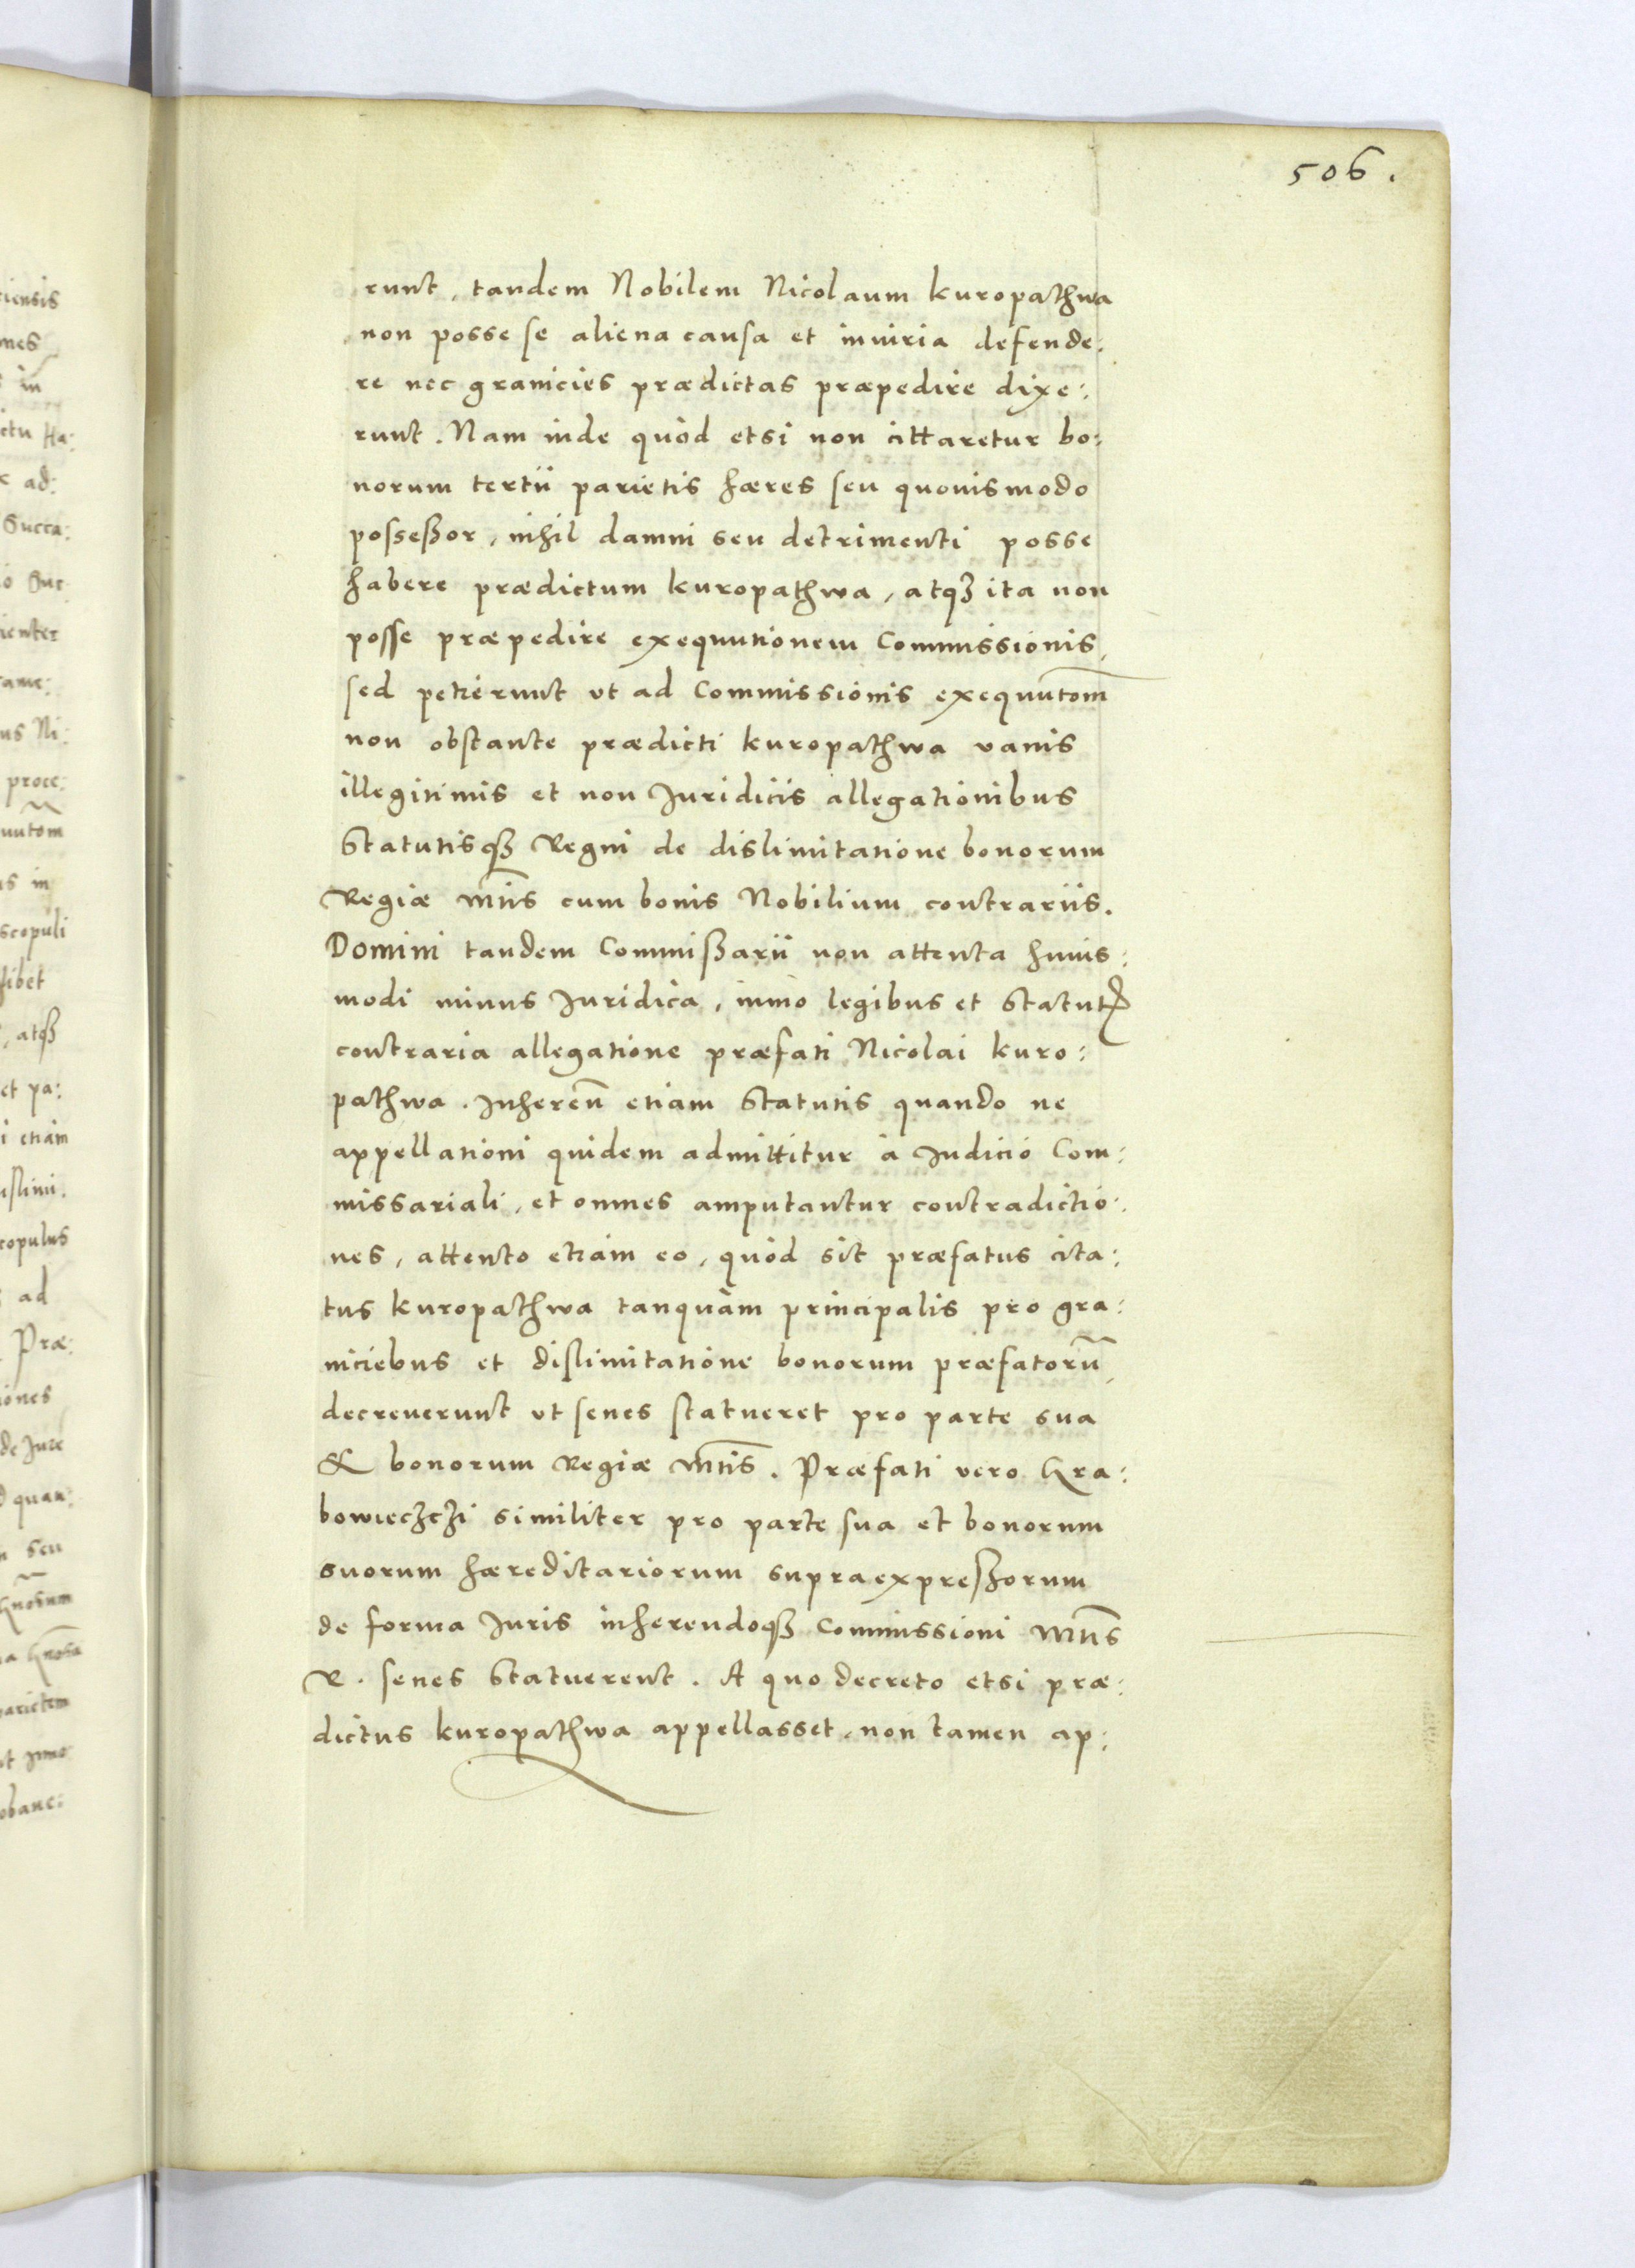 506.
runt, tandem Nobilem Nicolaum Kuropathwa
non posse se aliena causa et iniuria defende:
re nec granicies prædictas præpedire dixe:
runt. Nam inde quòd etsi non cittaretur bo:
norum tertii parietis hæres seu quouismodo
possessor, nihil damni seu detrimenti posse
habere prædictum Kuropathwa, atq3 ita non
posse præpedire exequutionem Commissionis,
sed petierunt vt ad Commissionis exequutom̃
non obstante prædicti Kuropathwa vanis
illegitimis et non Juridicis allegationibus
Statutisq3 Regni de dislimitatione bonorum
Regiæ Mtis cum bonis Nobilium contrariis.
Domini tandem Commissarii non attenta huius:
modi minus Juridica, immo legibus et Statutꝭ
contraria allegatione præfati Nicolai Kuro:
pathwa. Inhereñ etiam Statutis quando ne
appellationi quidem admittitur à Judicio Com:
missariali, et omnes amputantur contradictio:
nes, attento etiam eo, quòd sit præfatus cita:
tus Kuropathwa tanquàm principalis pro gra:
niciebus et dislimitatione bonorum præfatorũ,
decreuerunt vt senes statueret pro parte sua
& bonorum Regiæ Mtis. Præfati vero Hra:
bowieczczi similiter pro parte sua et bonorum
suorum hæreditariorum supraexpressorum
de forma Juris inherendoq3 Commissioni Mtis
R. senes Statuerent. A quo decreto etsi præ:
dictus Kuropathwa appellasset, non tamen ap: